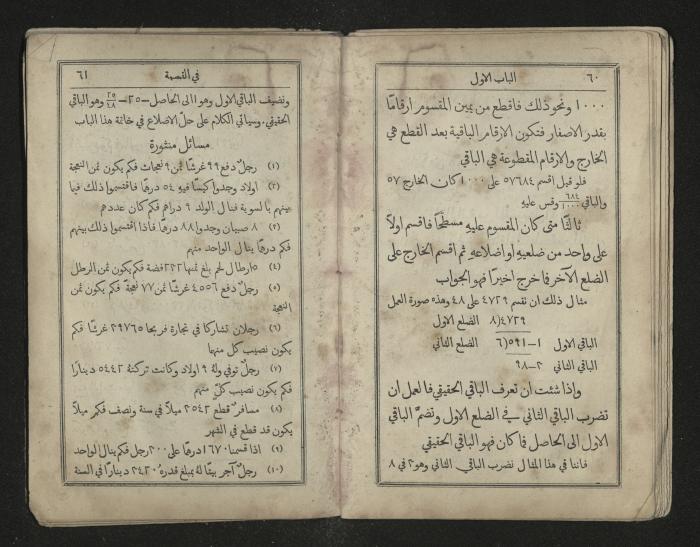 ٦٠ الباب الاول
١٠٠٠ ونحو ذلك فاقطع من يمين المقسوم ارقامًا
بقدر الاصفار فتكون الارقام الباقية بعد القطع هي
الخارج والارقام المقطوعة هي الباقي
فلو قيل اقسم ٥٧٦٨٤ على ١٠٠٠ كان الخارج ٥٧
والباقي ٦٨٤/١٠٠٠ وقس عليه
ثالثًا متى كان المقسوم عليه مسطحًا فاقسم اولاً
على واحد من ضلعيه او اضلاعه ثم اقسم الخارج على
الضلع الآخر فما خرج اخيرًا فهو الجواب
مثال ذلك ان نقسم ٤٧٢٩ على ٤٨ وهذه صورة العمل
٤٧٢٩(٨ الضلع الاول
الباقي الاول ١–٥٩١(٦ الضلع الثاني
الباقي الثاني ٣–٩٨
واذا شئت ان تعرف الباقي الحقيقي فالعمل ان
تضرب الباقي الثاني في الضلع الاول وتضم الباقي
الاول الى الحاصل فما كان فهو الباقي الحقيقي
فاننا في هذا المثال نضرب الباقي الثاني وهو ٣ في ٨
في القسمة ٦١
ونضيف الباقي الاول وهو ١ الى الحاصل –٢٥– ٢٥/٤٨ وهو الباقي
الحقيقي. وسياتي الكلام على حلّ الاضلاع في خاتمة هذا الباب
مسائل منثورة
(١) رجلٌ دفع ٩٩ غرشًا ثمن ٩ نعجات فكم يكون ثمن النعجة
(٢) اولاد وجدوا كيسًا فيه ٥٤ درهمًا فاقتسموا ذلك فيما
بينهم بالسوية فنال الولد ٩ دراهم فكم كان عددهم
(٣) ٨ صبيان وجدوا ٨٨ درهمًا فاذا اقتسموا ذلك بينهم
فكم درهمًا ينال الواحد منهم
(٤) ٥ ارطال لحم بلغ ثمنها ٢٣٢ فضة فكم يكون ثمن الرطل
(٥) رجلٌ دفع ٤٥٥٦ غرشًا ثمن ٧٧ نعجة فكم يكون ثمن
النعجة
(٦) رجلان تشاركا في تجارة فربحا ٢٩٧٦٥ غرشًا فكم
يكون نصيب كل منهما
(٧) رجلٌ توفي وله ٩ اولاد وكانت تركته ٥٤٤٢ دينارًا
فكم يكون نصيب كلٍّ منهم
(٨) مسافرٌ قطع ٢٥٤٢ ميلاً في سنة ونصف فكم ميلاً
يكون قد قطع في الشهر
(٩) اذا قسمنا ١٦٧٠ درهمًا على ٢٠٠ رجل فكم ينال الواحد
(١٠) رجلٌ آجر بيتًا له بمبلغ قدره ٢٤٣٠ دينارًا في السنة